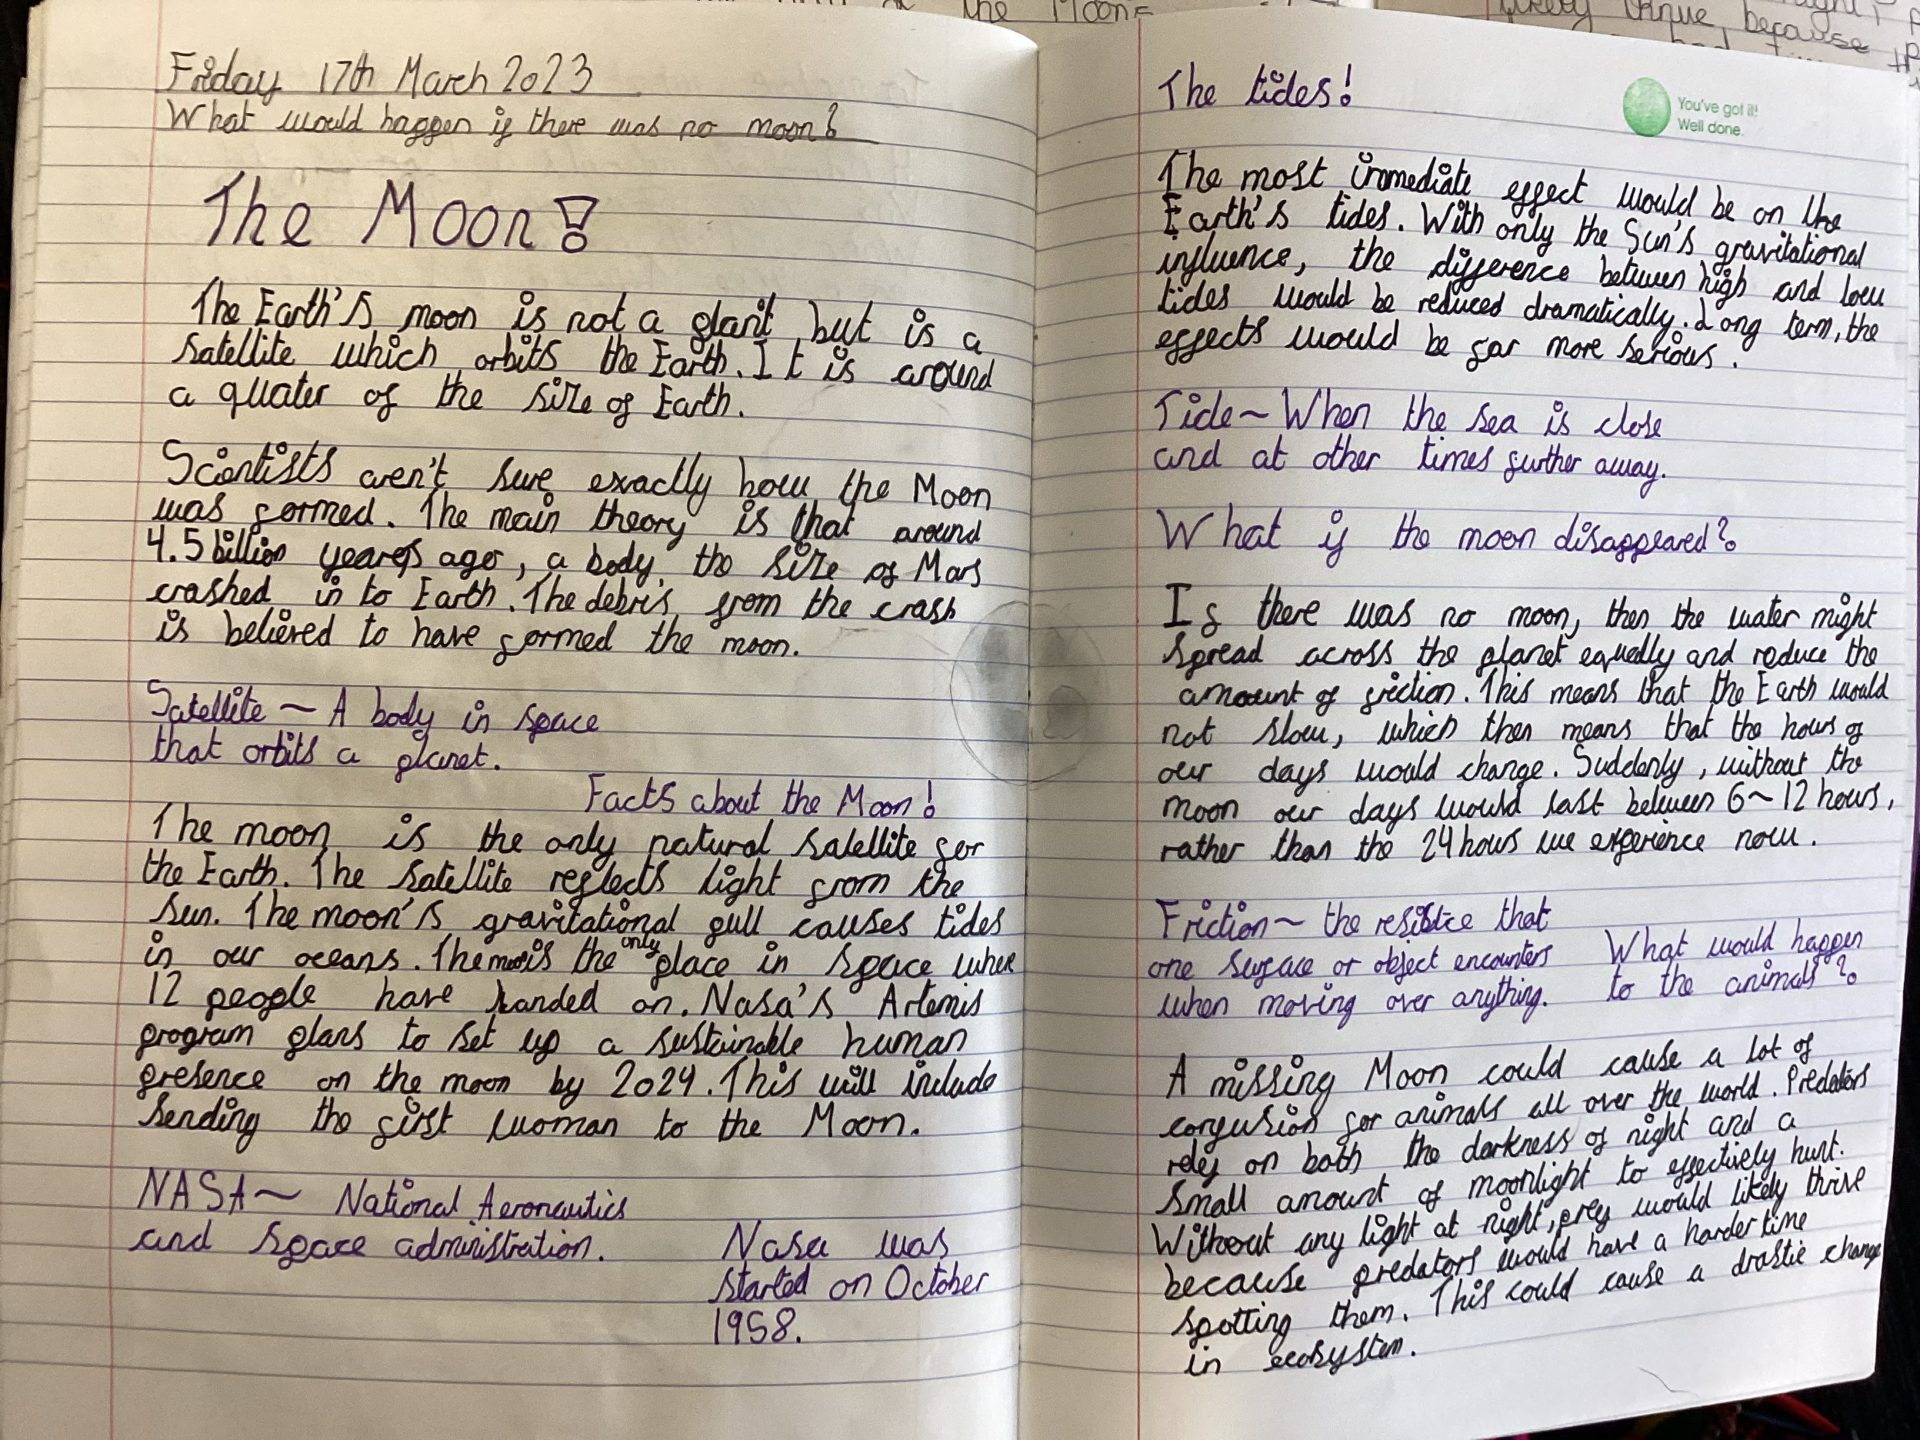 Friday 17th March 2023
What would happen if there was no moon?
The Moon!
The Earth's moon is not a plant but is a
satellite which orbits the Earth. It is around
a quater of the size of Earth.
Scientists aren't sure exactly how the Moon
was formed. The main theory is that around
4.5 billion years ago, a body, the size of Mars
crashed in to Earth. The debris, from the crash
is believed to have formed the moon.
Satellite ~ A body in space
that orbits a planet.
Facts about the Moon!
The moon is the only natural satellite for
the Earth. The satellite reflects light from the
sun. The moon's gravitational pull causes tides
in our oceans. The moon is the only place in space where
12 people have landed on. Nasa's Artemis
program plans to set up a sustainable human
presence on the moon by 2024. This will include
sending the first woman to the Moon.
NASA ~ National Aeronautics
and Space administration.
Nasa was
started on October
1958.
the Moon
likely thrive because
The tides!
You've got it!
Well done.
The most immediate effect would be on the
Earth's tides. With only the Sun's gravitational
influence, the difference between high and low
tides would be reduced dramatically. Long term, the
effects would be far more serious.
Tide ~ When the sea is close
and at other times further away.
What if the moon disappeared?
If there was no moon, then the water might
spread across the planet equally and reduce the
amount of friction. This means that the Earth would
not slow, which then means that the hours of
our days would change. Suddenly, without the
moon our days would last between 6~12 hours,
rather than the 24 hours we experience now.
Friction ~ the resistce that
one surface or object encounters
when moving over anything.
What would happen
to the animals?
A missing Moon could cause a lot of
confusion for animals all over the world. Predators
rely on both the darkness of night and a
small amount of moonlight to effectively hunt.
Without any light at night, prey would likely thrive
because predators would have a harder time
spotting them. This could cause a drastic change
in ecosystem.